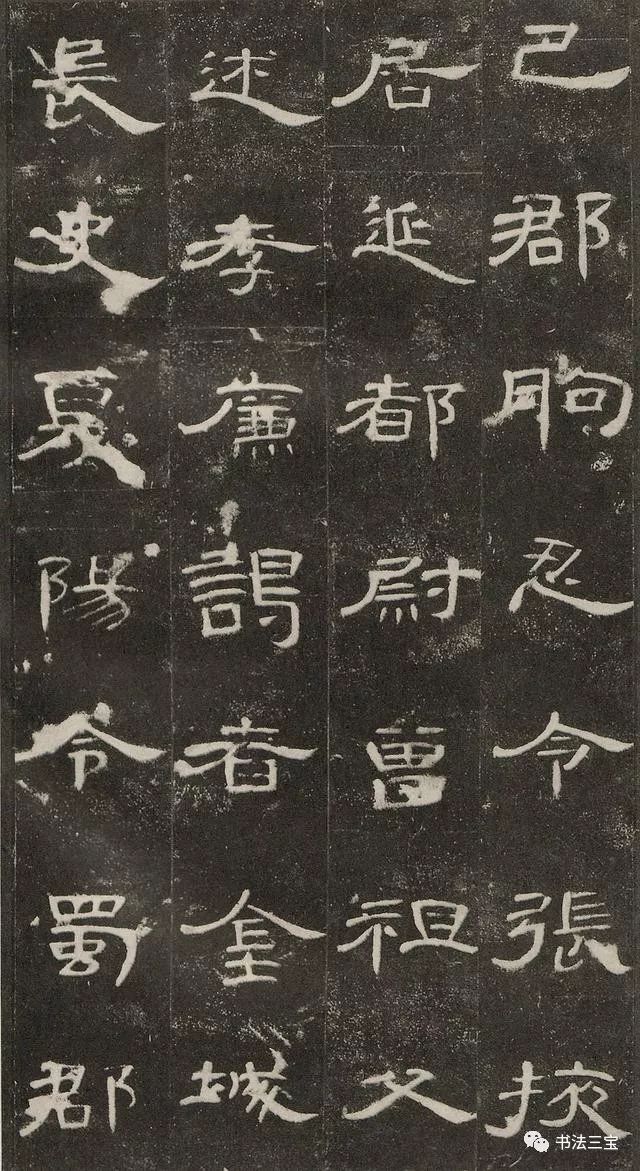 巴郡朐忍令張掖
居延都尉曾祖父
述孝廉謁者金城
長史夏陽令蜀郡
书法三宝